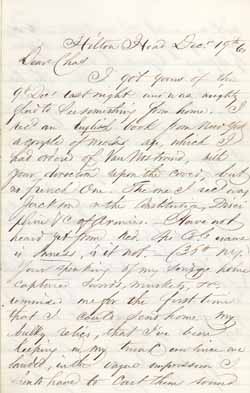 Hilton Head Dec. 19th 6
Dear Chas
I got yours of the
9th Dec. last night and was mighty
glad to hear something from home. I
rec'd an English book from New York
a couple of weeks ago, which I
had ordered of Van Nostrand, with
your direction upon the cover, but
no French One. The one I rec'd was
Jackson on the Constitution,
&c of Armies. I have not
heard yet from Ned. His Co.
is it not. (28th N.Y.)
Your speaking of my sending home
captured swords, muskets, &c.
reminded me for the first time
that I could send home my
bulky relics, that I've been
keeping in my trunk ever since we
landed, with vague impression I
should have to cart them around